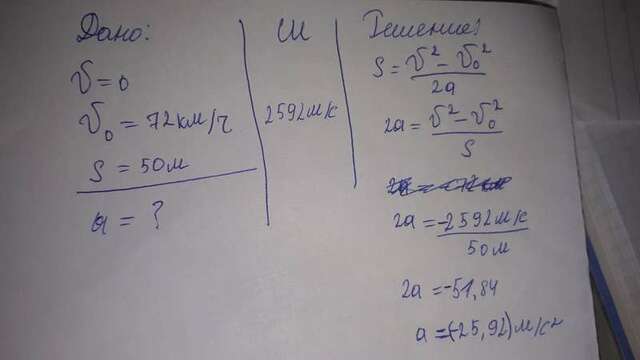 Дано:
V = 0
V₀ = 72 км/ч
S = 50 м
a = ?
СИ
2592 м/с
Решение:
S = V² - V₀² / 2a
2a = V² - V₀² / S
2a = -2592 м/с / 50 м
2a = -51,84
a = (-25,92) м/с²